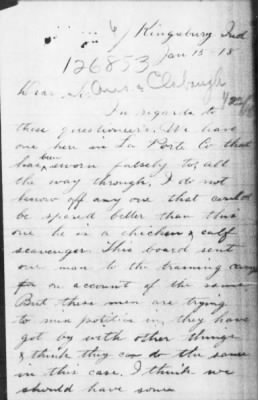 Kingsbury Ind
Jan 15 - 18
126853
Dear
In regards to
these questioneirs. We have
one here in La Porte Co that
has been sworn falsely to, all
the way through. I do not
know off any one that could
be spared better than this
one he is a chicken & calf
scavenger. This board sent
one man to the training camp
for on account of the same
But these men are trying
to mix politics in, they have
got by with other things
& think they can do the same
in this case. I think we
should have some